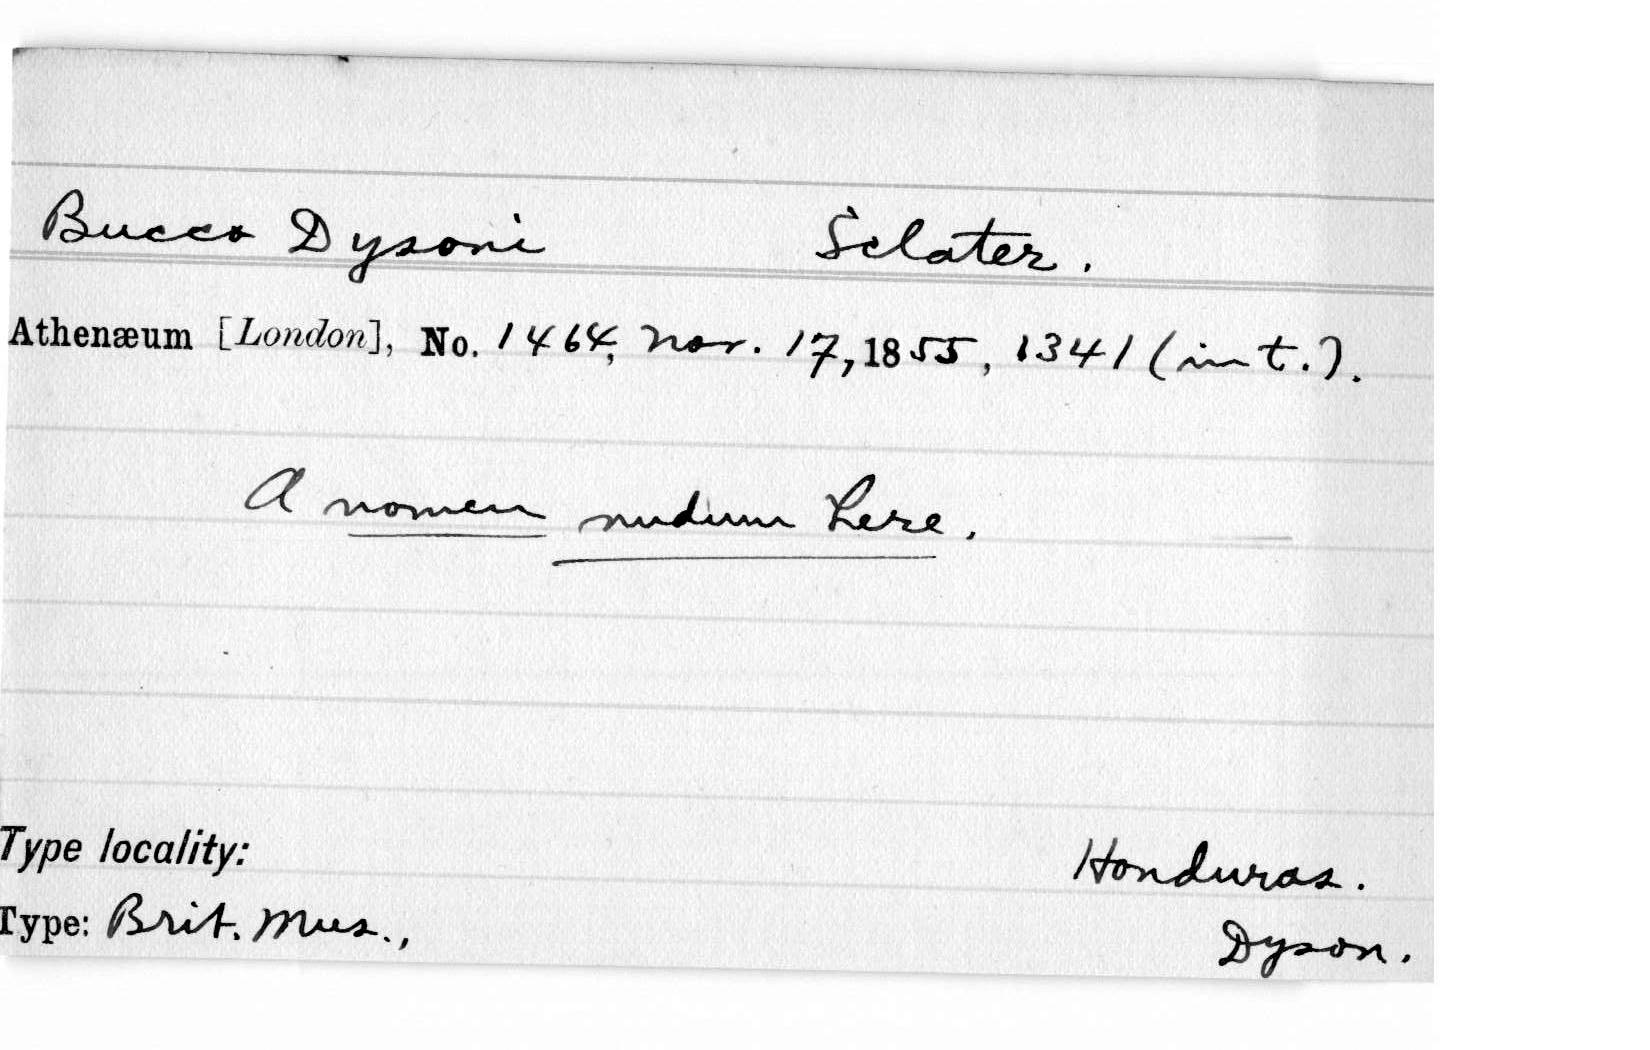 Bucco Dysoni Sclater.
Athenæum [London], No. 1464, Nov. 17, 1855, 1341 (int.).
A nomen nudum here.
Type locality: Honduras.
Type: Brit. Mus., Dyson.